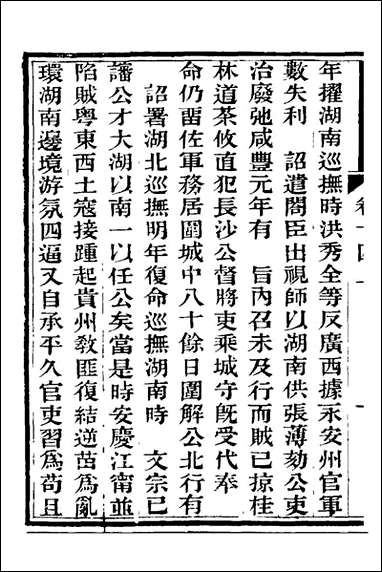 年擢湖南巡撫時洪秀全等反廣西據永安州官軍
數失利　詔遣閣臣出視師以湖南供張薄劾公吏
治廢弛咸豐元年有　旨內召未及行而賊已掠桂
林道茶攸直犯長沙公督將吏乘城守既受代奉
命仍畱佐軍務居圍城中八十餘日圍解公北行有
詔署湖北巡撫明年復命巡撫湖南時　文宗已
讅公才大湖以南一以任公矣當是時安慶江甯並
陷賊粵東西土寇接踵起貴州敎匪復結逆苗爲亂
環湖南邊境游氛四逼又自承平久官吏習爲苟且